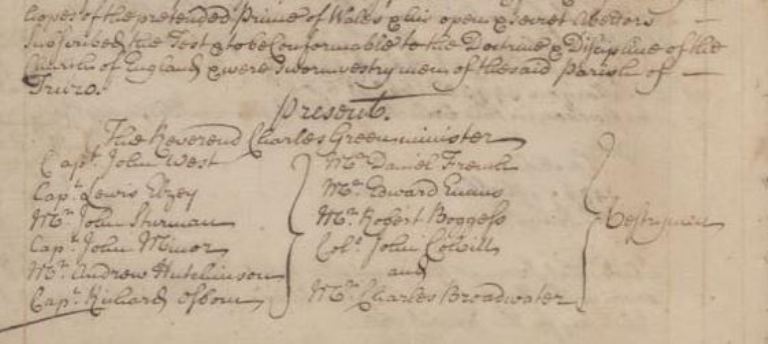 hopes of the pretended Prince of Wales & his open & secret Abettors
Subscribed the Test & to be Conformable to the Doctrine & Discipline of the
Church of England & were Sworn vestrymen of the said Parish of
Truro.
Present.
The Reverend Charles Green minister
Capt. John West
Capt. Lewis Elzey
Mr. John Sturman
Capt. John Minor
Mr. Andrew Hutchinson
Capt. Richard Osborn
Mr. Daniel French
Mr. Edward Emms
Mr. Robert Boggess
Colo. John Colvill
and
Mr. Charles Broadwater
Vestrymen